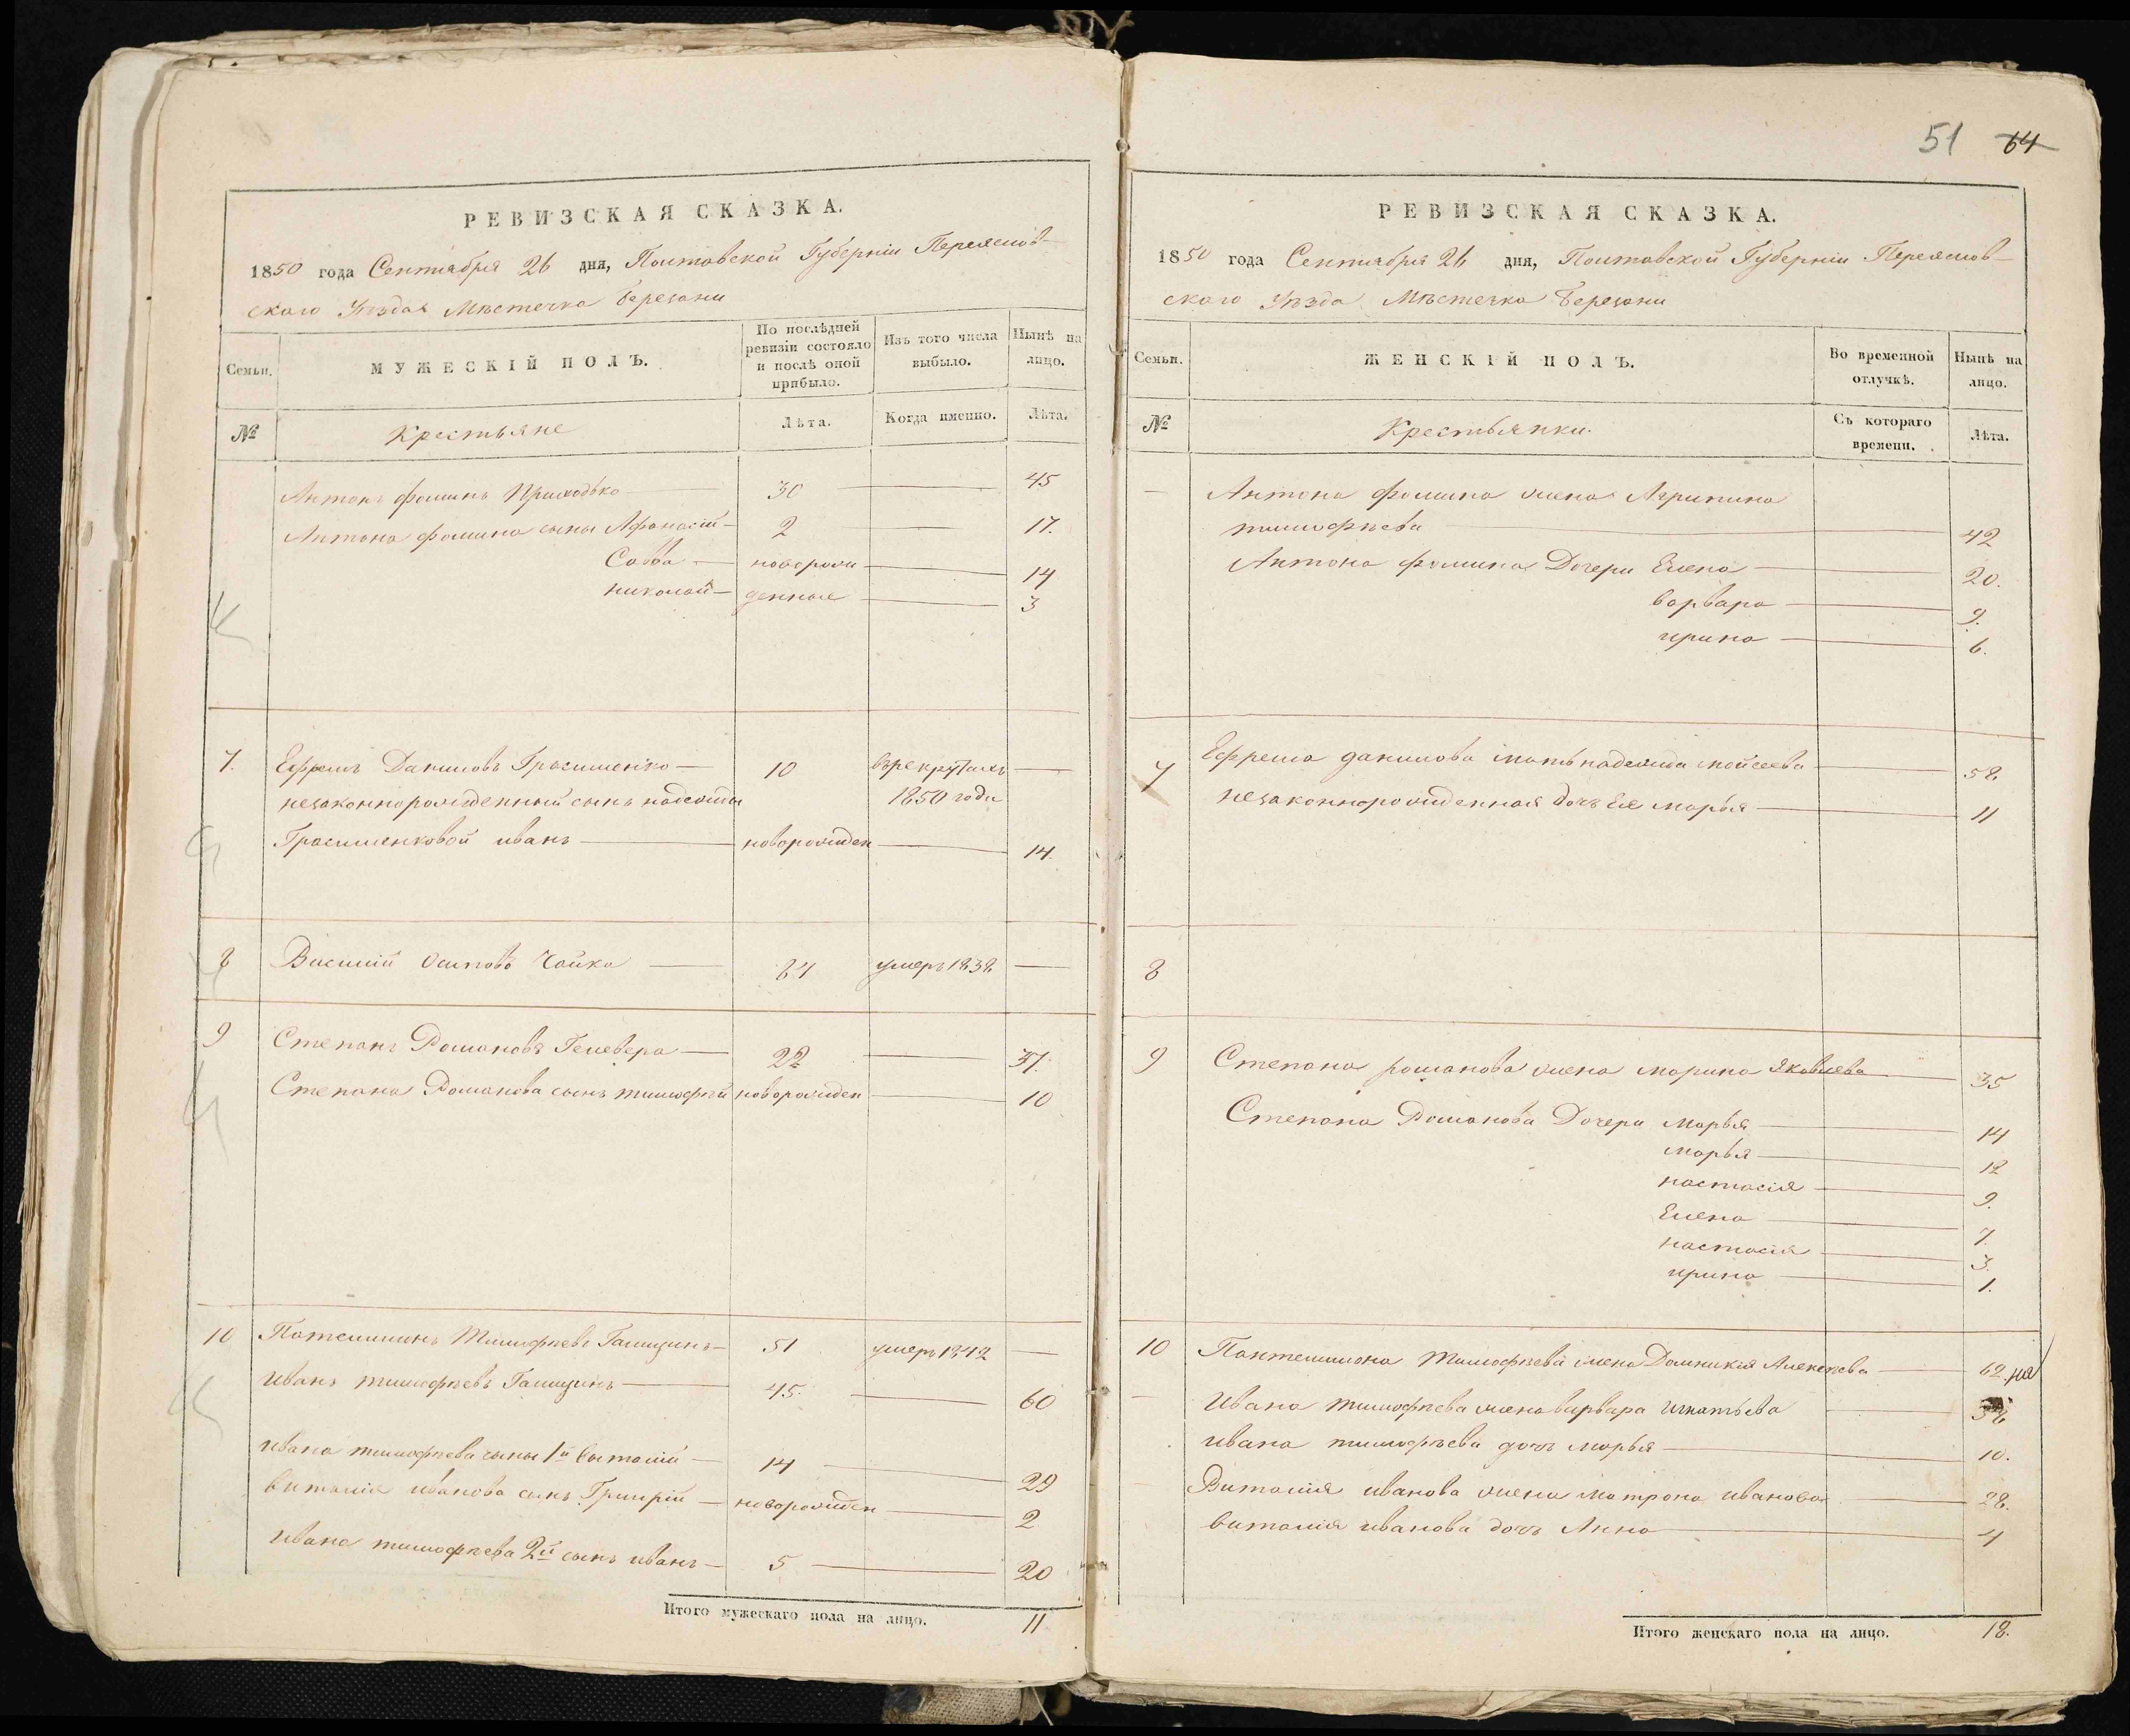 51 64
РЕВИЗСКАЯ СКАЗКА.
1850 года Сентября 26 дня, Полтавской Губерніи Переяслов-
скаго Уѣзда Мѣстечка Березани
Семьи.
МУЖЕСКІЙ ПОЛЪ.
По послѣдней ревизіи состояло и послѣ оной прибыло.
Изъ того числа выбыло.
Нынѣ на лицо.
№
Крестьяне
Лѣта.
Когда именно.
Лѣта.
Антонъ Фоминъ Приходько 30 45
Антона Фомина сыны Афанасій 2 17.
Савва новорож 14
николай денные 3
7. Ефремъ Даниловъ Грасименко 10 въ рекрутахъ
незаконнорожденный сынъ надежды 1850 года
Грасименковой иванъ новорожден 14.
8 Василій Осиповъ Чайка 84 умеръ 1838
9 Степанъ Романовъ Гелевера 22 37.
Степана Романова сынъ тимофѣй новорожден 10
10 Тимофѣевъ Галицинъ 51 умеръ 1842
Иванъ тимофѣевъ Галицинъ 45. 60
Ивана тимофѣева сыны 1й виталій 14 29
виталія иванова сынъ Григрій новорожден 2
Ивана тимофѣева 2й сынъ иванъ 5 20
Итого мужескаго пола на лицо. 11
РЕВИЗСКАЯ СКАЗКА.
1850 года Сентября 26 дня, Полтавской Губерніи Переяслов-
скаго Уѣзда Мѣстечка Березани
Семьи.
ЖЕНСКІЙ ПОЛЪ.
Во временной отлучкѣ.
Нынѣ на лицо.
№
Крестьянки.
Съ котораго времени.
Лѣта.
Антона Фомина жена Агрипина
тимофѣева 42
Антона Фомина Дочери Елена 20.
варвара 9.
ирина 6.
7 Ефрема данилова мать надежда мойсеева 58
незаконнорожденная дочь Ея марья 11
8
9 Степана романова жена марина Яковлева 35
Степана Романова Дочери марья 14
марья 12
настасія 9.
Елена 7.
настасія 3.
ирина 1.
10 Пантелимона Тимофѣева жена Домникія Алексѣева 62
Ивана тимофѣева жена варвара игнатьева
ивана тимофѣева дочь марья 10.
Виталія иванова жена матрона иванова 28.
виталія иванова дочь Анна 4
Итого женскаго пола на лицо. 18.